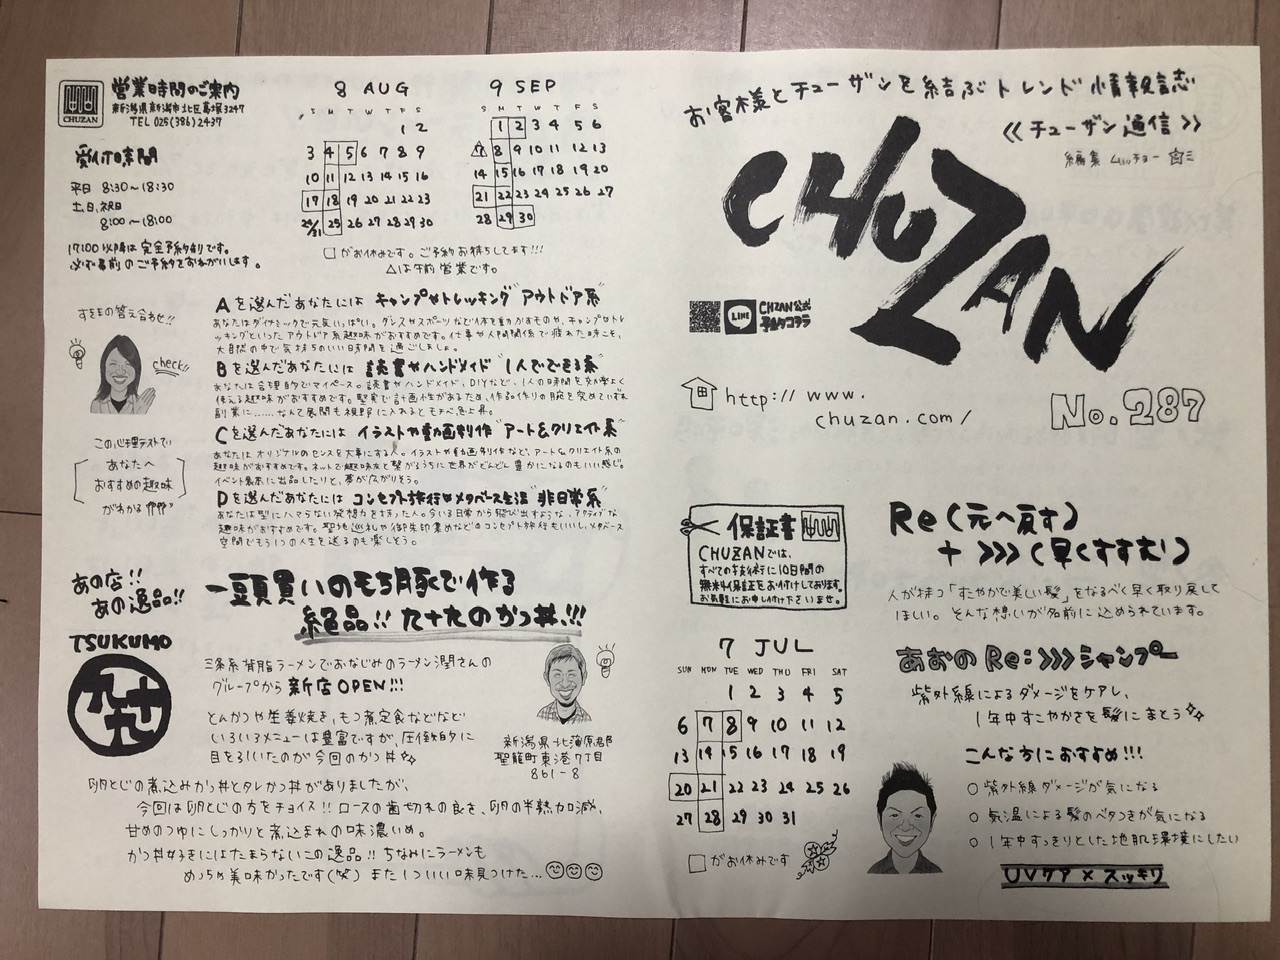 CHUZAN
営業時間のご案内
新潟県新潟市北区葛塚3247
TEL 025(386)2437
受付時間
平日 8:30〜18:30
土、日、祝日
8:00〜18:00
17:00以降は完全予約制です。
必ず事前のご予約をおねがいします。
8 AUG
S M T W T F S
1 2
3 4 5 6 7 8 9
10 11 12 13 14 15 16
17 18 19 20 21 22 23
24/31 25 26 27 28 29 30
9 SEP
S M T W T F S
1 2 3 4 5 6
7 8 9 10 11 12 13
14 15 16 17 18 19 20
21 22 23 24 25 26 27
28 29 30
□がお休みです。ご予約お待ちしてます!!!
△は午前営業です。
すももの答え合わせ!!
check!!
この心理テストで
あなたへ
おすすめの趣味
がわかる
Aを選んだあなたには キャンプやトレッキング"アウトドア系"
あなたはダイナミックで元気いっぱい。ダンスやスポーツなど体を動かすものや、キャンプやトレ
ッキングといったアウトドア系趣味がおすすめです。仕事や人間関係で疲れた時こそ、
大自然の中で気持ちのいい時間を過ごしましょ。
Bを選んだあなたには 読書やハンドメイド"1人でできる系"
あなたは合理的でマイペース。読書やハンドメイド、DIYなど、1人の時間を効率よく
使える趣味がおすすめです。堅実で計画性があるため、作品作りの腕を究めていずれ
副業に……なんて展開も視野に入れるとモチベ急上昇。
Cを選んだあなたには イラストや動画制作"アート&クリエイト系"
あなたはオリジナルのセンスを大事にする人。イラストや動画制作など、アート&クリエイト系の
趣味がおすすめです。ネットで趣味友と繋がるうちに世界がどんどん豊かになるのもいい感じ。
イベント展示に出品したりと、夢が広がりそう。
Dを選んだあなたには コンセプト旅行やメタバース生活"非日常系"
あなたは型にハマらない発想力を持った人。今いる日常から飛び出すような、アクティブな
趣味がおすすめです。聖地巡礼や御朱印集めなどのコンセプト旅行もいいし、メタバース
空間でもう1つの人生を送るのも楽しそう。
あの店!!
あの逸品!!
一頭買いのもち豚で作る
絶品!! 九十九のかつ丼!!!
TSUKUMO
九十九
三条系背脂ラーメンでおなじみのラーメン潤さんの
グループから新店OPEN!!!
とんかつや生姜焼き、もつ煮定食などなど
いろいろメニューは豊富ですが、圧倒的に
目を引いたのが今回のかつ丼
新潟県北蒲原郡
聖籠町東港7丁目
861-8
卵とじの煮込みかつ丼とタレかつ丼がありましたが、
今回は卵とじの方をチョイス!! ロースの歯切れの良さ、卵の半熟加減、
甘めのつゆにしっかりと煮込まれの味濃いめ。
かつ丼好きにはたまらないこの逸品!! ちなみにラーメンも
めっちゃ美味かったです(笑) また1ついい味見つけた…
お客様とチューザンを結ぶトレンド情報誌
《チューザン通信》
編集 ムッチョー
CHUZAN
LINE
CHZAN公式
http://www.
chuzan.com/
No.287
保証書
CHUZANでは、
すべての技術に10日間の
無料保証をお付けしております。
お気軽にお申し付け下さいませ。
7 JUL
SUN MON TUE WED THU FRI SAT
1 2 3 4 5
6 7 8 9 10 11 12
13 14 15 16 17 18 19
20 21 22 23 24 25 26
27 28 29 30 31
□がお休みです
Re(元へ戻す)
+ >>>(早くすすむ)
人が持つ「すこやかで美しい髪」をなるべく早く取り戻して
ほしい。そんな想いが名前に込められています。
あおのRe:>>>シャンプー
紫外線によるダメージをケアし、
1年中すこやかさを髪にまとう
こんな方におすすめ!!!
○ 紫外線ダメージが気になる
○ 気温による髪のベタつきが気になる
○ 1年中すっきりとした地肌環境にしたい
UVケア×スッキリ